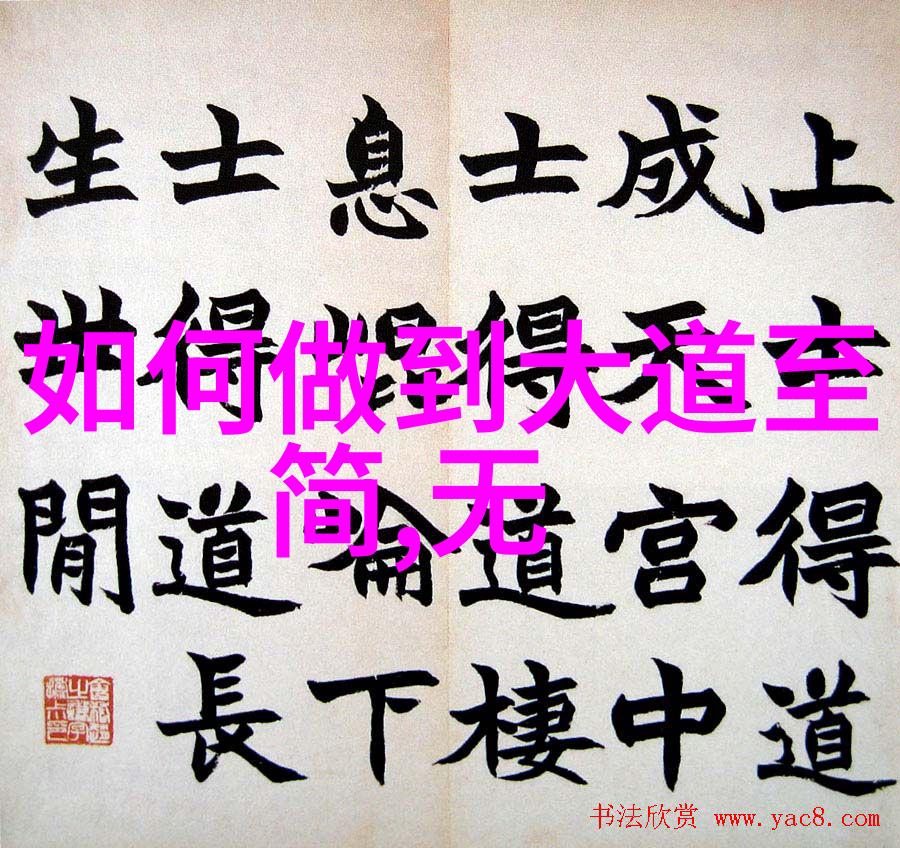 如何做到大道至
简,无
上士得道
成天宮中
士得道棲
息崘下
士得道長
生世閒
书法欣赏 www.yac8.com